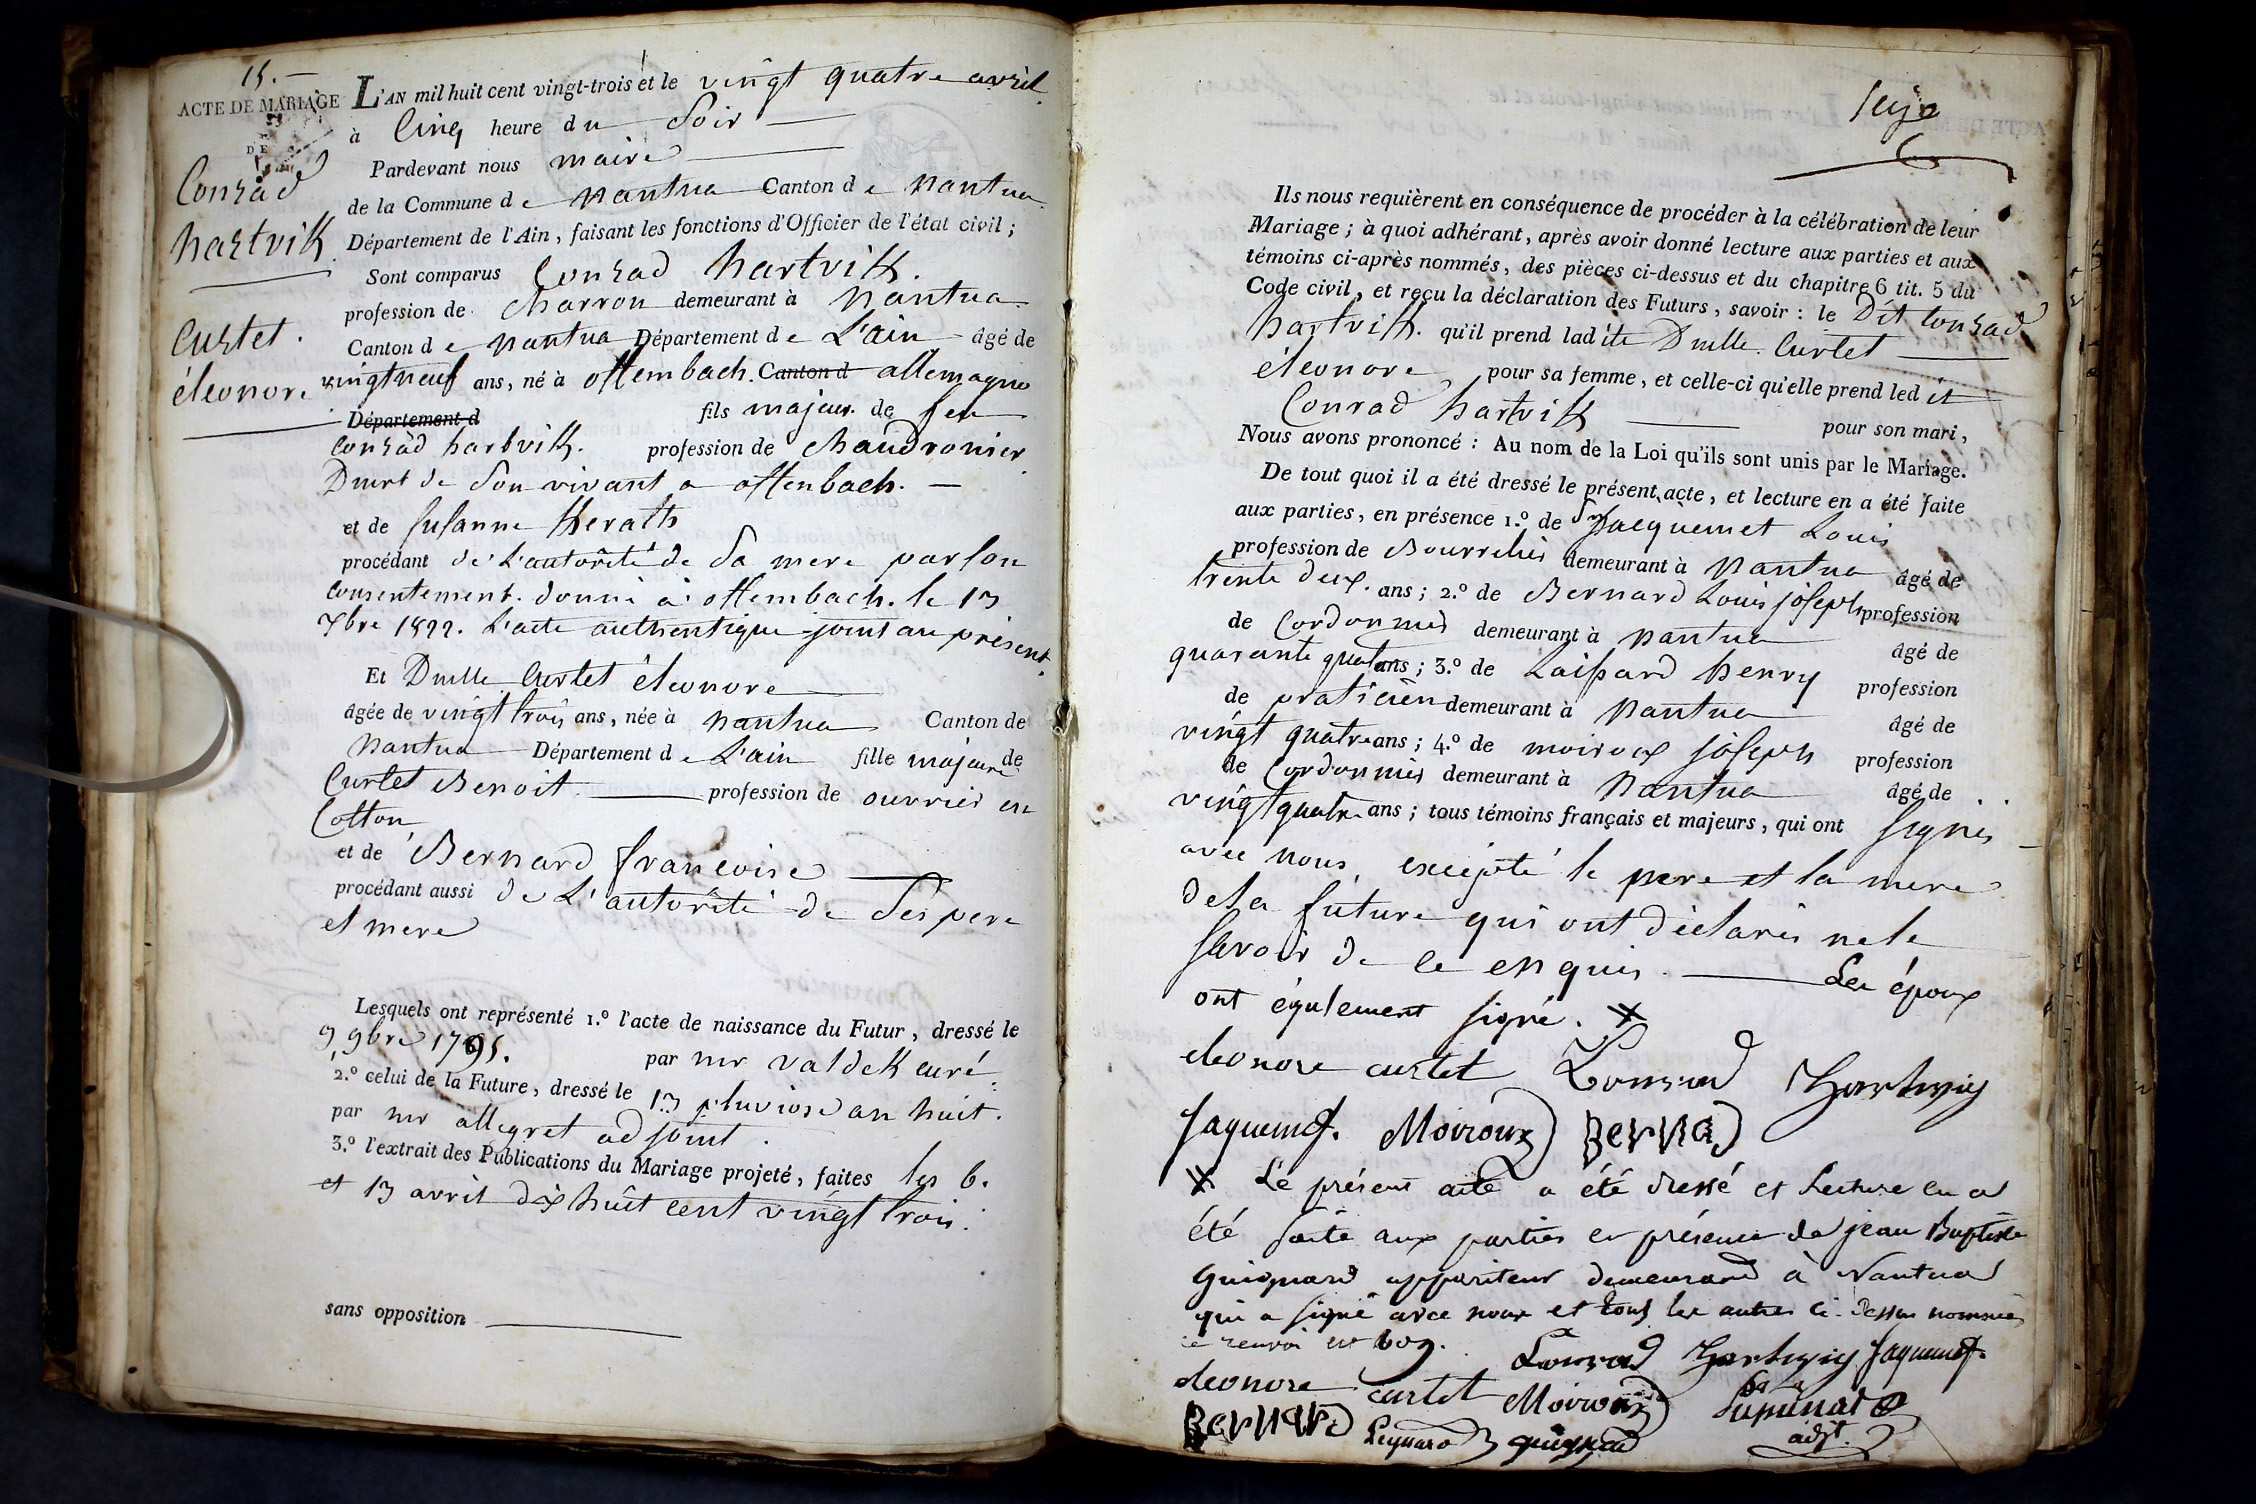 15. —
ACTE DE MARIAGE
DE
Conrad
hartvik
Curtet.
éléonore
L'AN mil huit cent vingt-trois et le vingt quatre avril
à Cinq heure du Soir
Pardevant nous maire
de la Commune de nantua Canton de nantua
Département de l'Ain, faisant les fonctions d'Officier de l'état civil;
Sont comparus Conrad hartvik.
profession de charron demeurant à nantua
Canton de nantua Département de L'ain âgé de
vingtneuf ans, né à offembach. Canton d allemagne
Département d fils majeur de feu
Conrad hartvik. profession de chaudronier
Dmrt de Son vivant a offenbach. —
et de Susanne Kerath
procédant de L'autorité de Sa mere par son
Consentement. donné à offembach. le 13
7bre 1822. L'acte authentique joint au présent.
Et Dmlle Curtet éleonore
âgée de vingt trois ans, née à nantua Canton de
nantua Département de L'ain fille majeure de
Curtet Benoit profession de ouvrier en
Cotton
et de Bernard francoise
procédant aussi de L'autorité de Ses pere
et mere
Lesquels ont représenté 1.º l'acte de naissance du Futur, dressé le
9 9bre 1795. par mr valdek curé
2.º celui de la Future, dressé le 13 pluviose an huit.
par mr allegret adjoint.
3.º l'extrait des Publications du Mariage projeté, faites les 6.
et 13 avril dix huit cent vingt trois.
sans opposition
Ils nous requièrent en conséquence de procéder à la célébration de leur
Mariage; à quoi adhérant, après avoir donné lecture aux parties et aux
témoins ci-après nommés, des pièces ci-dessus et du chapitre 6 tit. 5 du
Code civil, et reçu la déclaration des Futurs, savoir: le Dit Conrad
hartvik. qu'il prend ladite Dmlle. Curtet
éleonore pour sa femme, et celle-ci qu'elle prend ledit
Conrad hartvik pour son mari,
Nous avons prononcé: Au nom de la Loi qu'ils sont unis par le Mariage.
De tout quoi il a été dressé le présent acte, et lecture en a été faite
aux parties, en présence 1.º de Srs Jacquemet Louis
profession de Bourrelier demeurant à nantua âgé de
trente deux. ans; 2.º de Bernard Louis joseph profession
de Cordonnier demeurant à nantua âgé de
quarante quatre ans; 3.º de Laissard henry profession
de praticien demeurant à nantua âgé de
vingt quatre ans; 4.º de moiroux joseph profession
de Cordonnier demeurant à nantua âgé de
vingt quatre ans; tous témoins français et majeurs, qui ont signés
avec nous, excépté le pere et la mere
de la future qui ont déclarés ne le
savoir de ce enquis. — Les époux
ont également signé. ⚹
eleonore curtet Conrad Hartwig
Jaquemet. Moiroux Bernad
⚹ Le présent acte a été dressé et Lecture en a
été faite aux parties en présence de jean Baptiste
Guignard appariteur demeurant à Nantua
qui a signé avec nous et tous les autres ci-dessus nommés
ce renvoi est bon. Conrad Hartwig Jaquemet.
eleonore curtet Moiroux
Bernard guignard adjt.